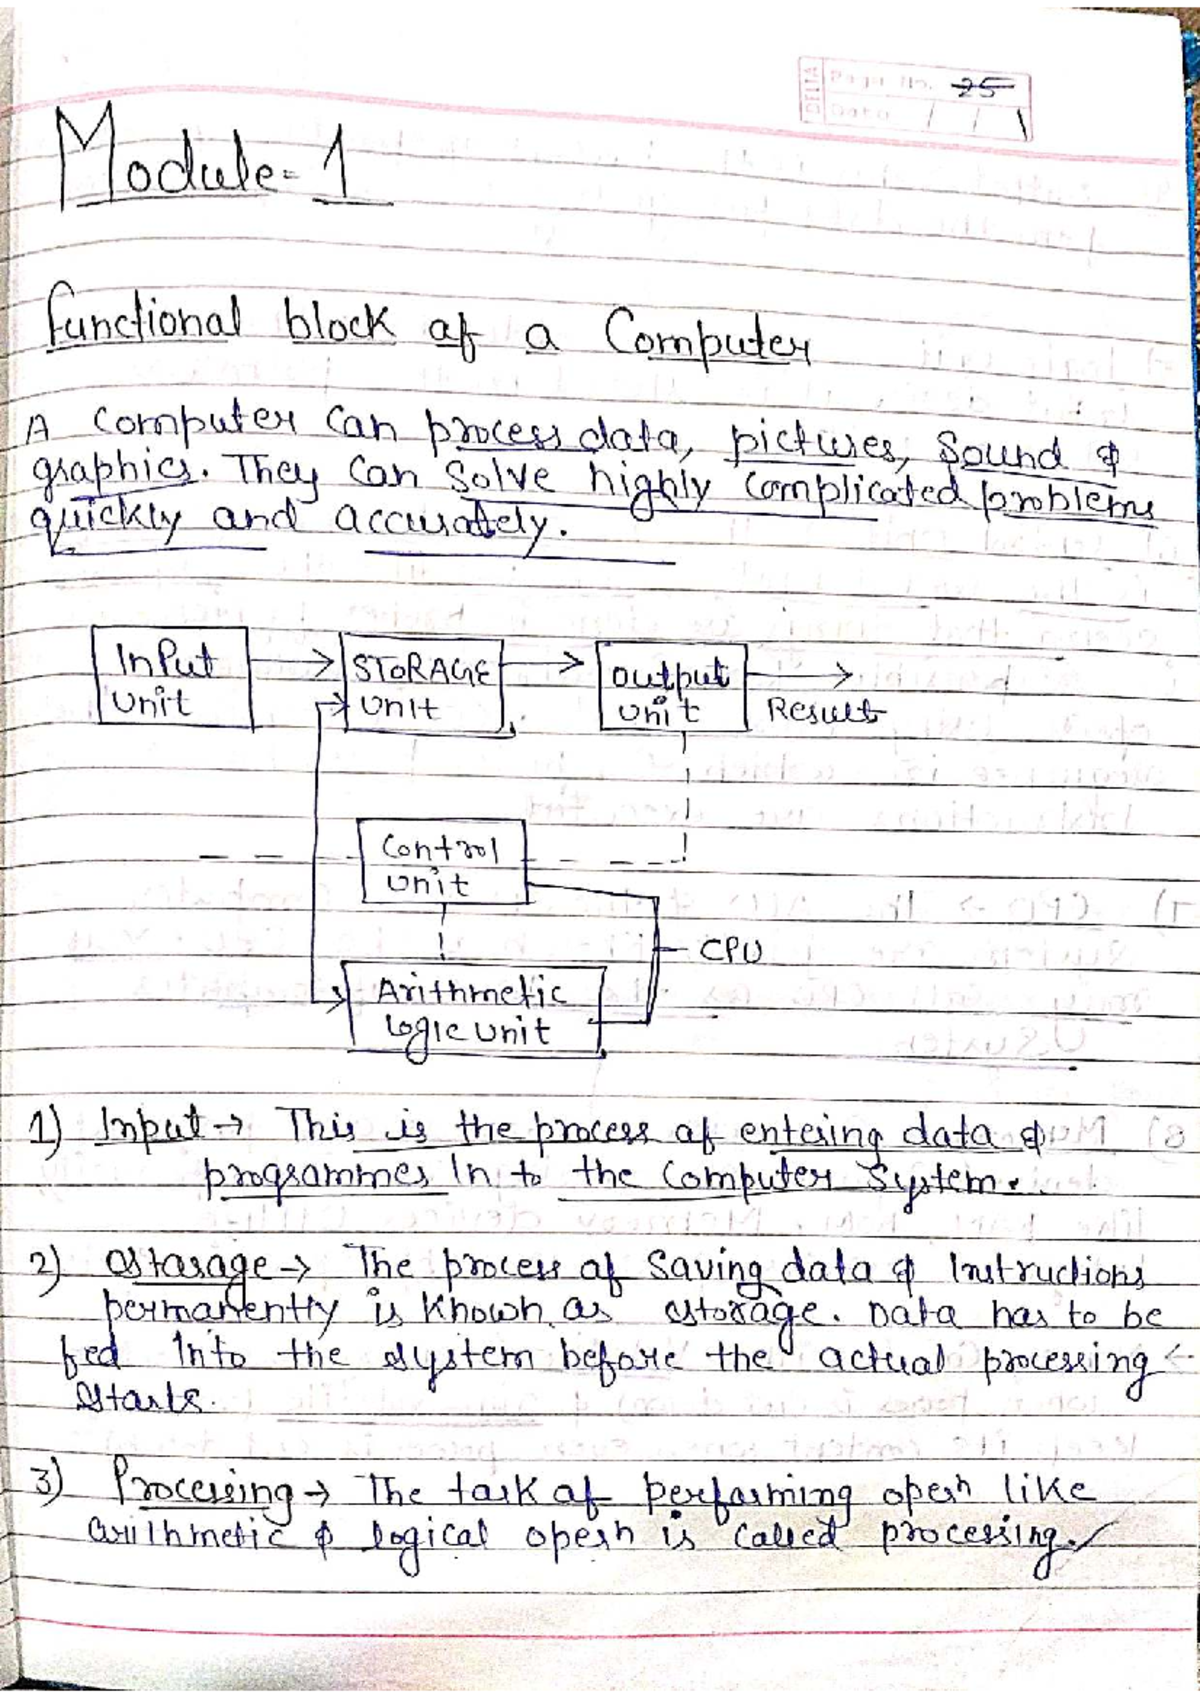 DELTA
Page No. 25
Date / / 1
Module-1
functional block of a Computer
A computer can process data, pictures, sound &
graphics. They can solve highly complicated problems
quickly and accurately.
Input
unit
STORAGE
unit
output
unit
Result
Control
unit
CPU
Arithmetic
Logic unit
1) Input → This is the process of entering data &
programmes In to the computer system.
2) Storage → The process of saving data & Instructions
permanently is known as storage. Data has to be
fed Into the system before the actual processing
starts.
3) Processing → The task of performing opern like
arithmetic & logical opern is called processing.